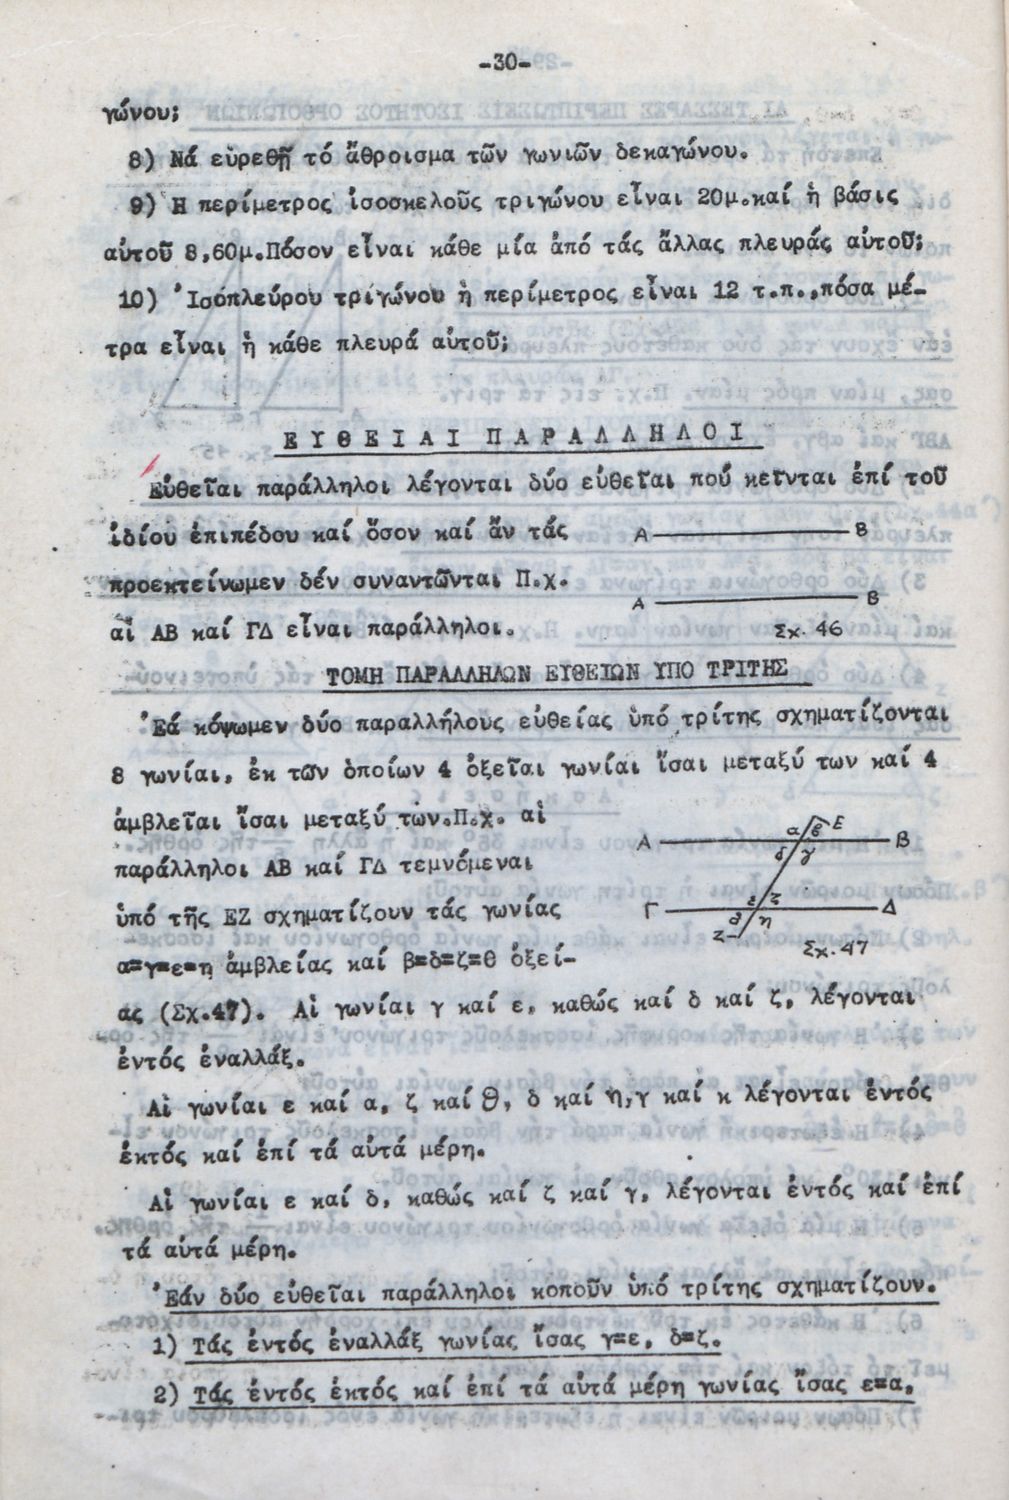 -30-
γώνου;
8) Νά εὑρεθῇ τό ἄθροισμα τῶν γωνιῶν δεκαγώνου.
9) Η περίμετρος ἰσοσκελοῦς τριγώνου εἶναι 20μ.καί ἡ βάσις
αὐτοῦ 8,60μ.Πόσον εἶναι κάθε μία ἀπό τάς ἄλλας πλευράς αὐτοῦ;
10) Ἰσοπλεύρου τριγώνου ἡ περίμετρος εἶναι 12 τ.π.,πόσα μέ-
τρα εἶναι ἡ κάθε πλευρά αὐτοῦ;
ΕΥΘΕΙΑΙ ΠΑΡΑΛΛΗΛΟΙ
Εὐθεῖαι παράλληλοι λέγονται δύο εὐθεῖαι πού κεῖνται ἐπί τοῦ
ἰδίου ἐπιπέδου καί ὅσον καί ἄν τάς
προεκτείνωμεν δέν συναντῶνται Π.χ.
αἱ ΑΒ καί ΓΔ εἶναι παράλληλοι.
Α Β
Α Β
Σχ. 46
ΤΟΜΗ ΠΑΡΑΛΛΗΛΩΝ ΕΥΘΕΙΩΝ ΥΠΟ ΤΡΙΤΗΣ
Ἐά κόψωμεν δύο παραλλήλους εὐθείας ὑπό τρίτης σχηματίζονται
8 γωνίαι, ἐκ τῶν ὁποίων 4 ὀξεῖαι γωνίαι ἴσαι μεταξύ των καί 4
ἀμβλεῖαι ἴσαι μεταξύ των.Π.χ. αἱ
παράλληλοι ΑΒ καί ΓΔ τεμνόμεναι
ὑπό τῆς ΕΖ σχηματίζουν τάς γωνίας
α=γ=ε=η ἀμβλείας καί β=δ=ζ=θ ὀξεί-
α β Ε
Α Β
δ γ
ε ζ
Γ Δ
θ η
Ζ
Σχ. 47
ας (Σχ.47). Αἱ γωνίαι γ καί ε, καθώς καί δ καί ζ, λέγονται
ἐντός ἐναλλάξ.
Αἱ γωνίαι ε καί α, ζ καί θ, δ καί η,γ καί κ λέγονται ἐντός
ἐκτός καί ἐπί τά αὐτά μέρη.
Αἱ γωνίαι ε καί δ, καθώς καί ζ καί γ, λέγονται ἐντός καί ἐπί
τά αὐτά μέρη.
Ἐάν δύο εὐθεῖαι παράλληλοι κοποῦν ὑπό τρίτης σχηματίζουν.
1) Τάς ἐντός ἐναλλάξ γωνίας ἴσας γ=ε, δ=ζ.
2) Τάς ἐντός ἐκτός καί ἐπί τά αὐτά μέρη γωνίας ἴσας ε=α,